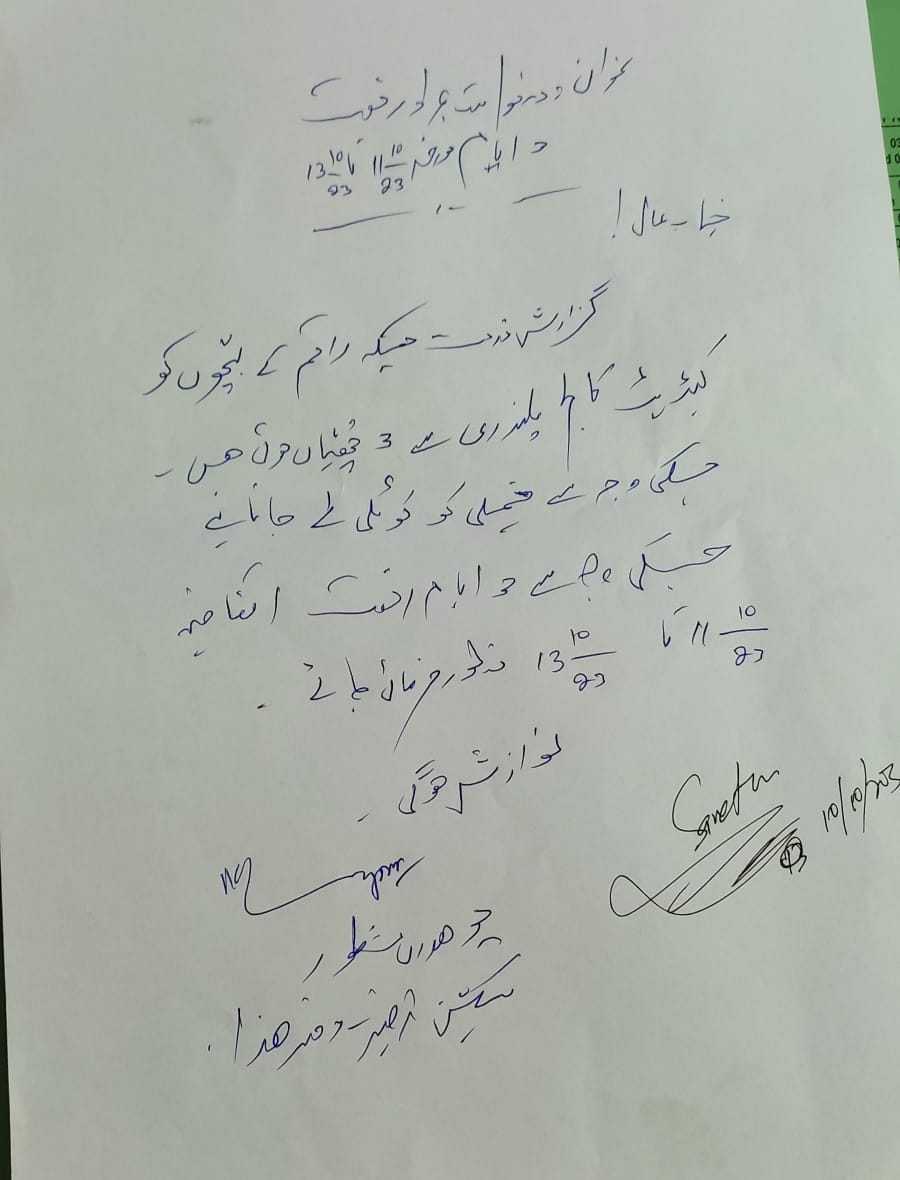 عنوان درخواست بمراد رخصت
3 ایام مورخہ 11 10/23 تا 13 10/23
جناب عالی!
گزارش خدمت ہیکہ راقم کے بچوں کو
کیڈیٹ کالج پلندری سے 3 چھٹیاں ہوئی ھیں۔
جسکی وجہ سے فیملی کو کوٹلی لے جانا ہے
جسکی وجہ سے 3 ایام رخت اتفاقیہ
11 10/23 تا 13 10/23 منظور فرمائی جائے۔
نوازش ہوگی۔
10/10/203
چوھدری منظور
سیکشن آفیسر دفتر ھذا۔